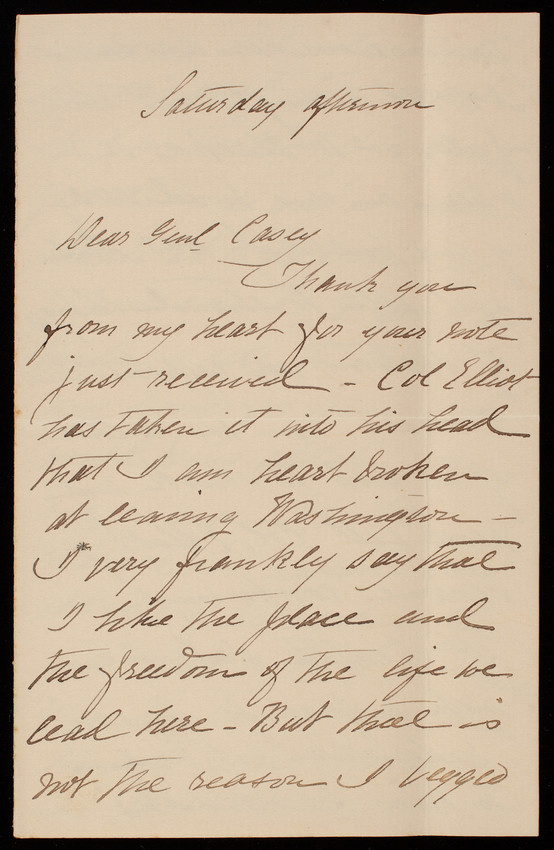 Saturday afternoon
Dear Genl Casey
Thank you
from my heart for your note
just received - Col Elliot
has taken it into his head
that I am heart broken
at leaving Washington -
I very frankly say that
I like the place and
the freedom of the life we
lead here - But that is
not the reason I begged